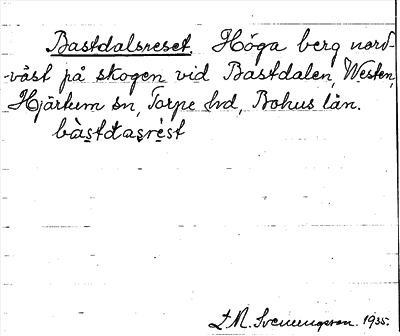 Bastdalsreset. Höga berg nord-
-väst på skogen vid Bastdalen, Westen,
Hjärtum sn, Torpe hd, Bohus län.
bàstđasrèst
L.R. Svenungsson. 1935.